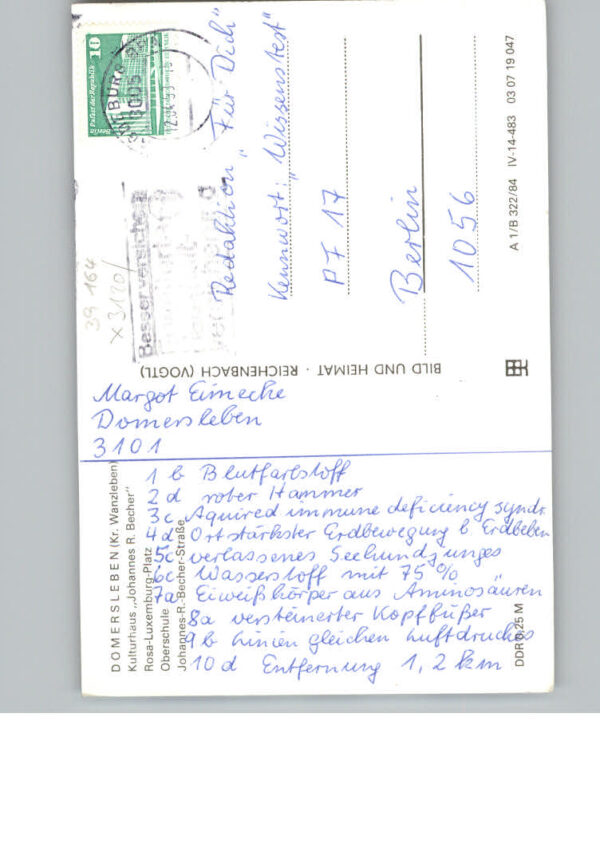 10
Palast der Republik
Berlin
3005
Besser versichern
39 164
x 3120/
Redaktion „Für Dich"
Kennwort: „Wissenstest"
PF 17
Berlin
1056
A 1/B 322/84 IV-14-483 03 07 19 047
BILD UND HEIMAT · REICHENBACH (VOGTL)
Margot Eimecke
Domersleben
3101
DOMERSLEBEN (Kr. Wanzleben)
Kulturhaus „Johannes R. Becher"
Rosa-Luxemburg-Platz
Oberschule
Johannes-R.-Becher-Straße
1 b Blutfarbstoff
2 d roter Hammer
3c Aquired immune deficiency syndr.
4d Ort stärkster Erdbewegung b Erdbeben
5c verlassenes Seehundjunges
6c Wasserstoff mit 75 %
7a Eiweißkörper aus Aminosäuren
8a versteinerter Kopffüßer
9 b Linien gleichen Luftdruckes
10 d Entfernung 1,2 km
DDR 0,25 M